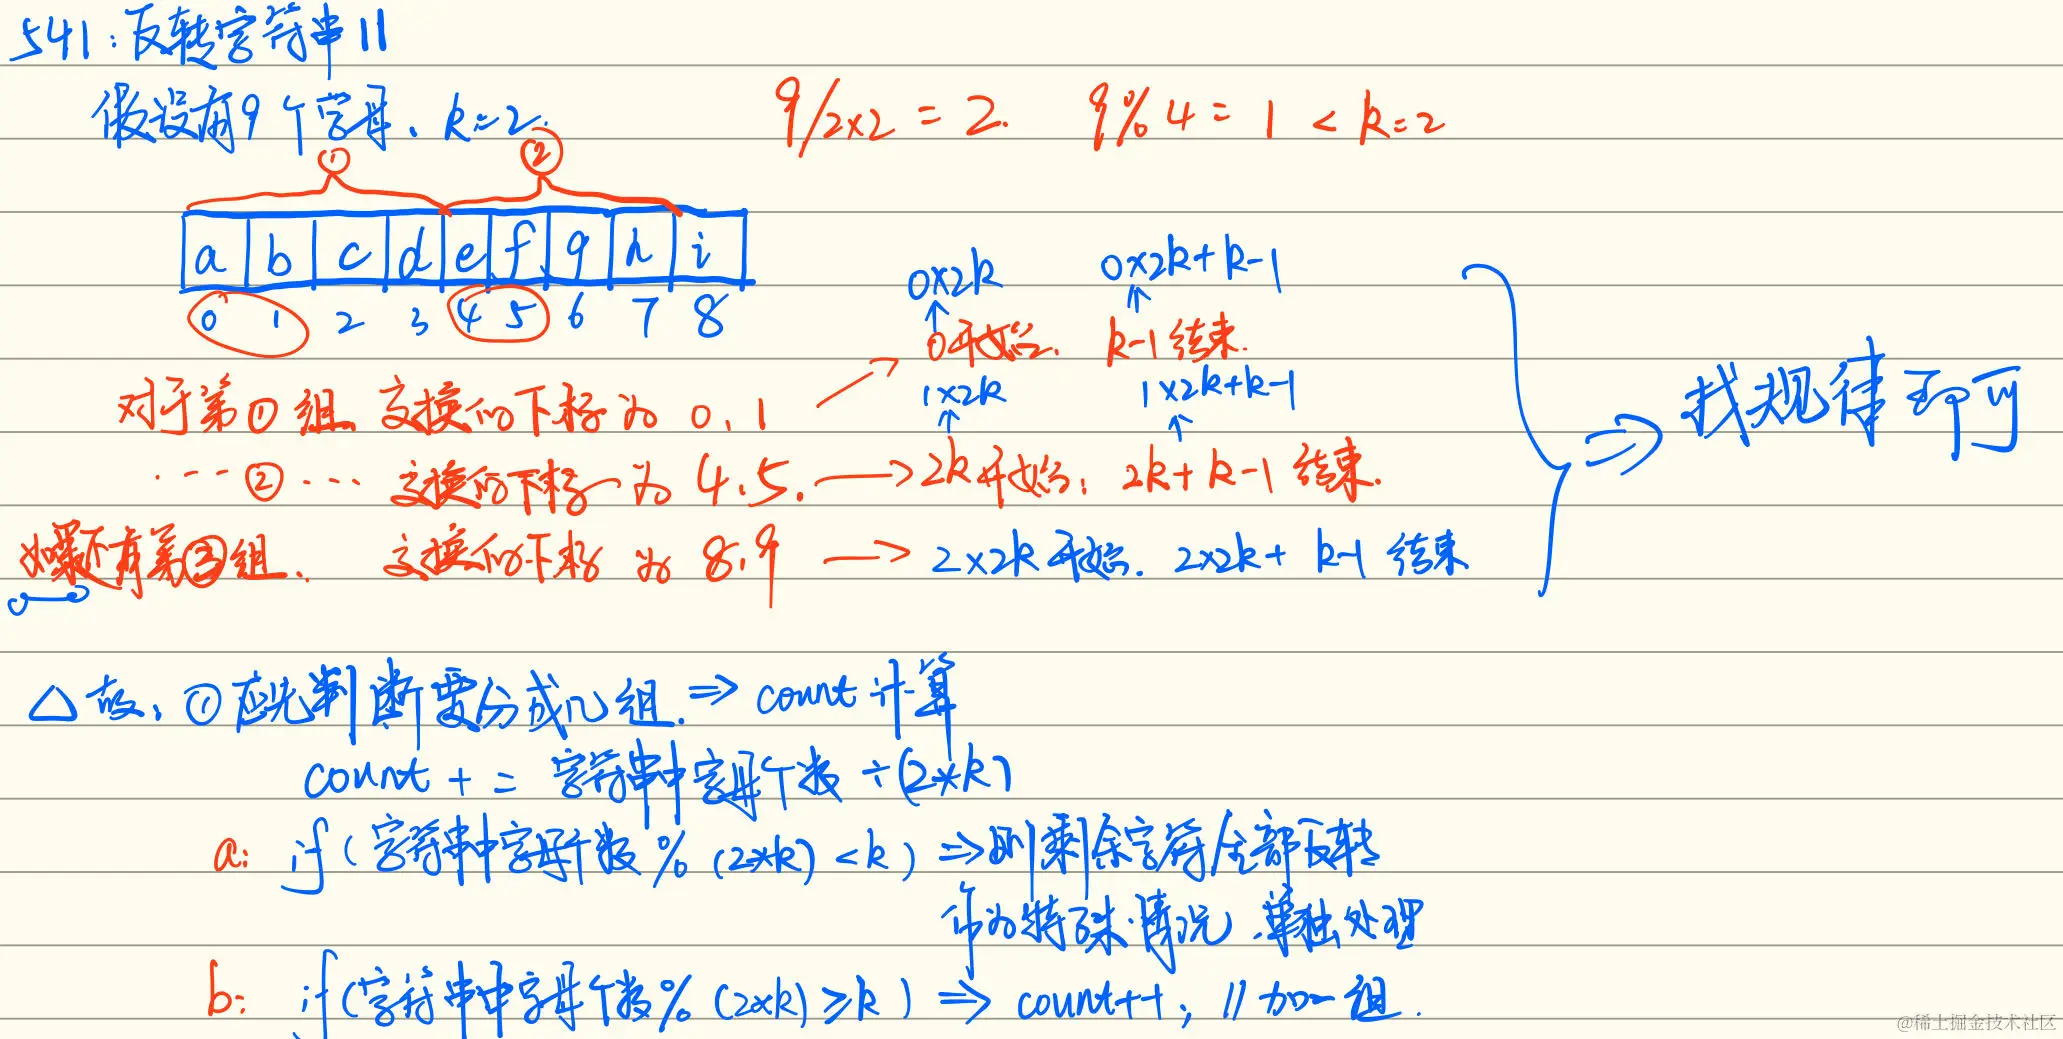 541:反转字符串II
假设有9个字母、k=2.
9/2×2=2. 9%4=1<k=2
① ②
a b c d e f g h i
0 1 2 3 4 5 6 7 8
0×2k 0×2k+k-1
0开始. k-1结束.
对于第①组 交换的下标为 0, 1
1×2k 1×2k+k-1
找规律即可
……②…… 交换的下标为 4.5. 2k开始, 2k+k-1结束.
如果还有第③组. 交换的下标为 8.9 2×2k开始. 2×2k+k-1结束
△故, ①应先判断要分成几组.⇒count计算
count += 字符串中字母个数÷(2*k)
a: if(字符串中字母个数%(2*k)<k)⇒则剩余字符全部反转
作为特殊情况,单独处理
b: if(字符串中字母个数%(2*k)≥k)⇒count++; //加一组.
@稀土掘金技术社区